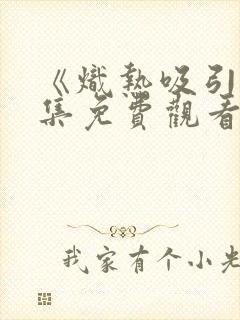 《熾熱吸引
集免費觀看
我家有个小